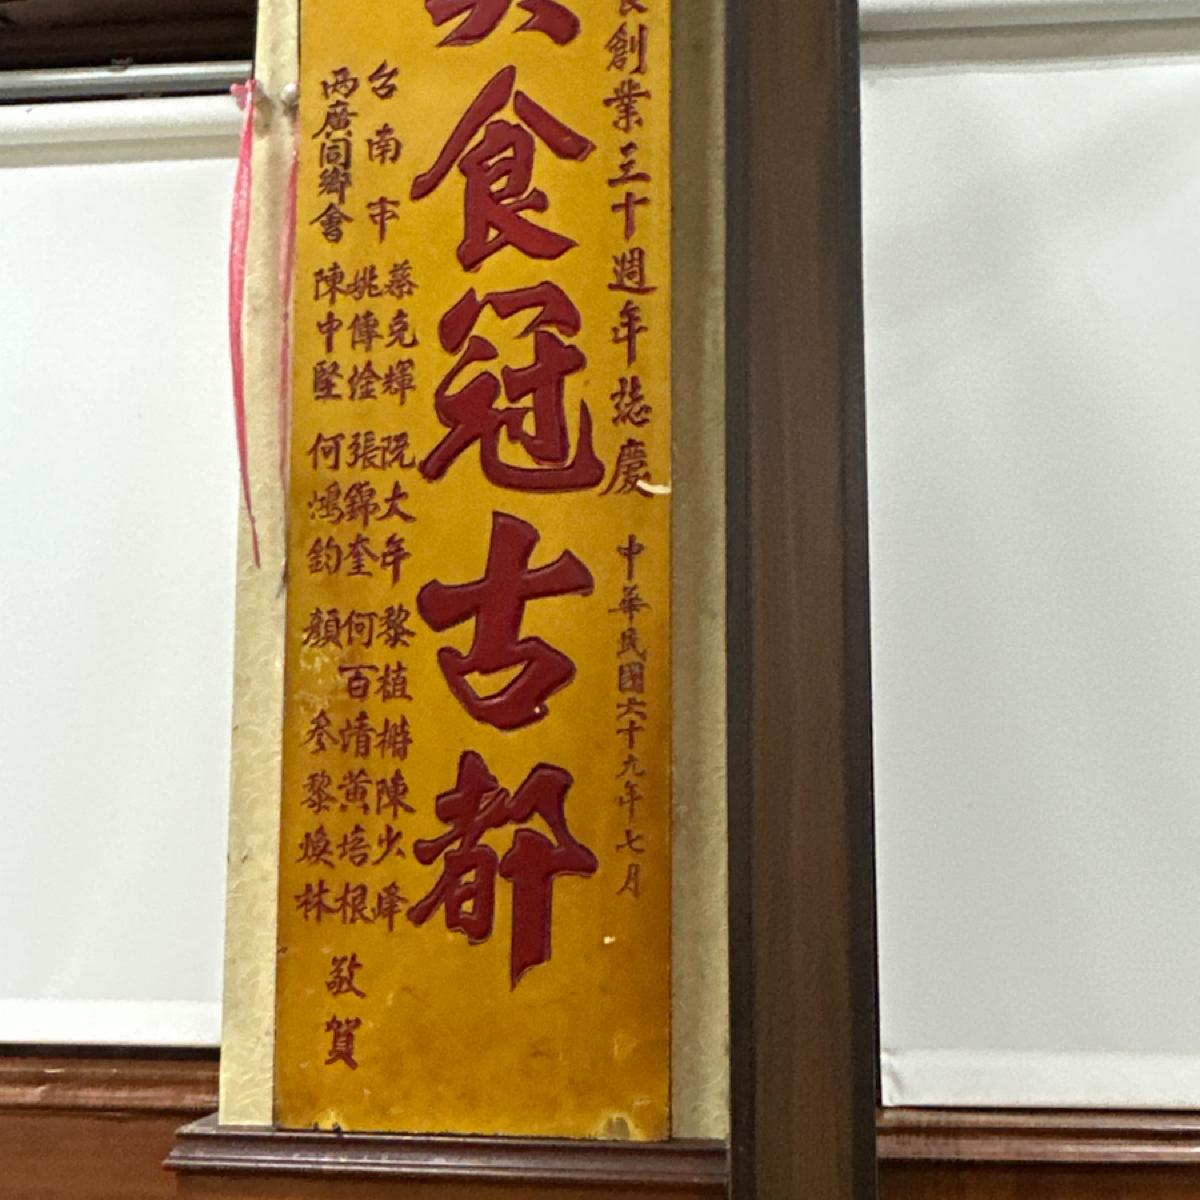 創業三十週年誌慶 中華民國六十九年七月
食冠古都
台南市
兩廣同鄉會
蔡克輝 阮大年 黎植樹 陳少峰
姚傳淦 張錦奎 何百靖 黃培根
陳中堅 何鴻鈞 顏參 黎煥林
敬賀